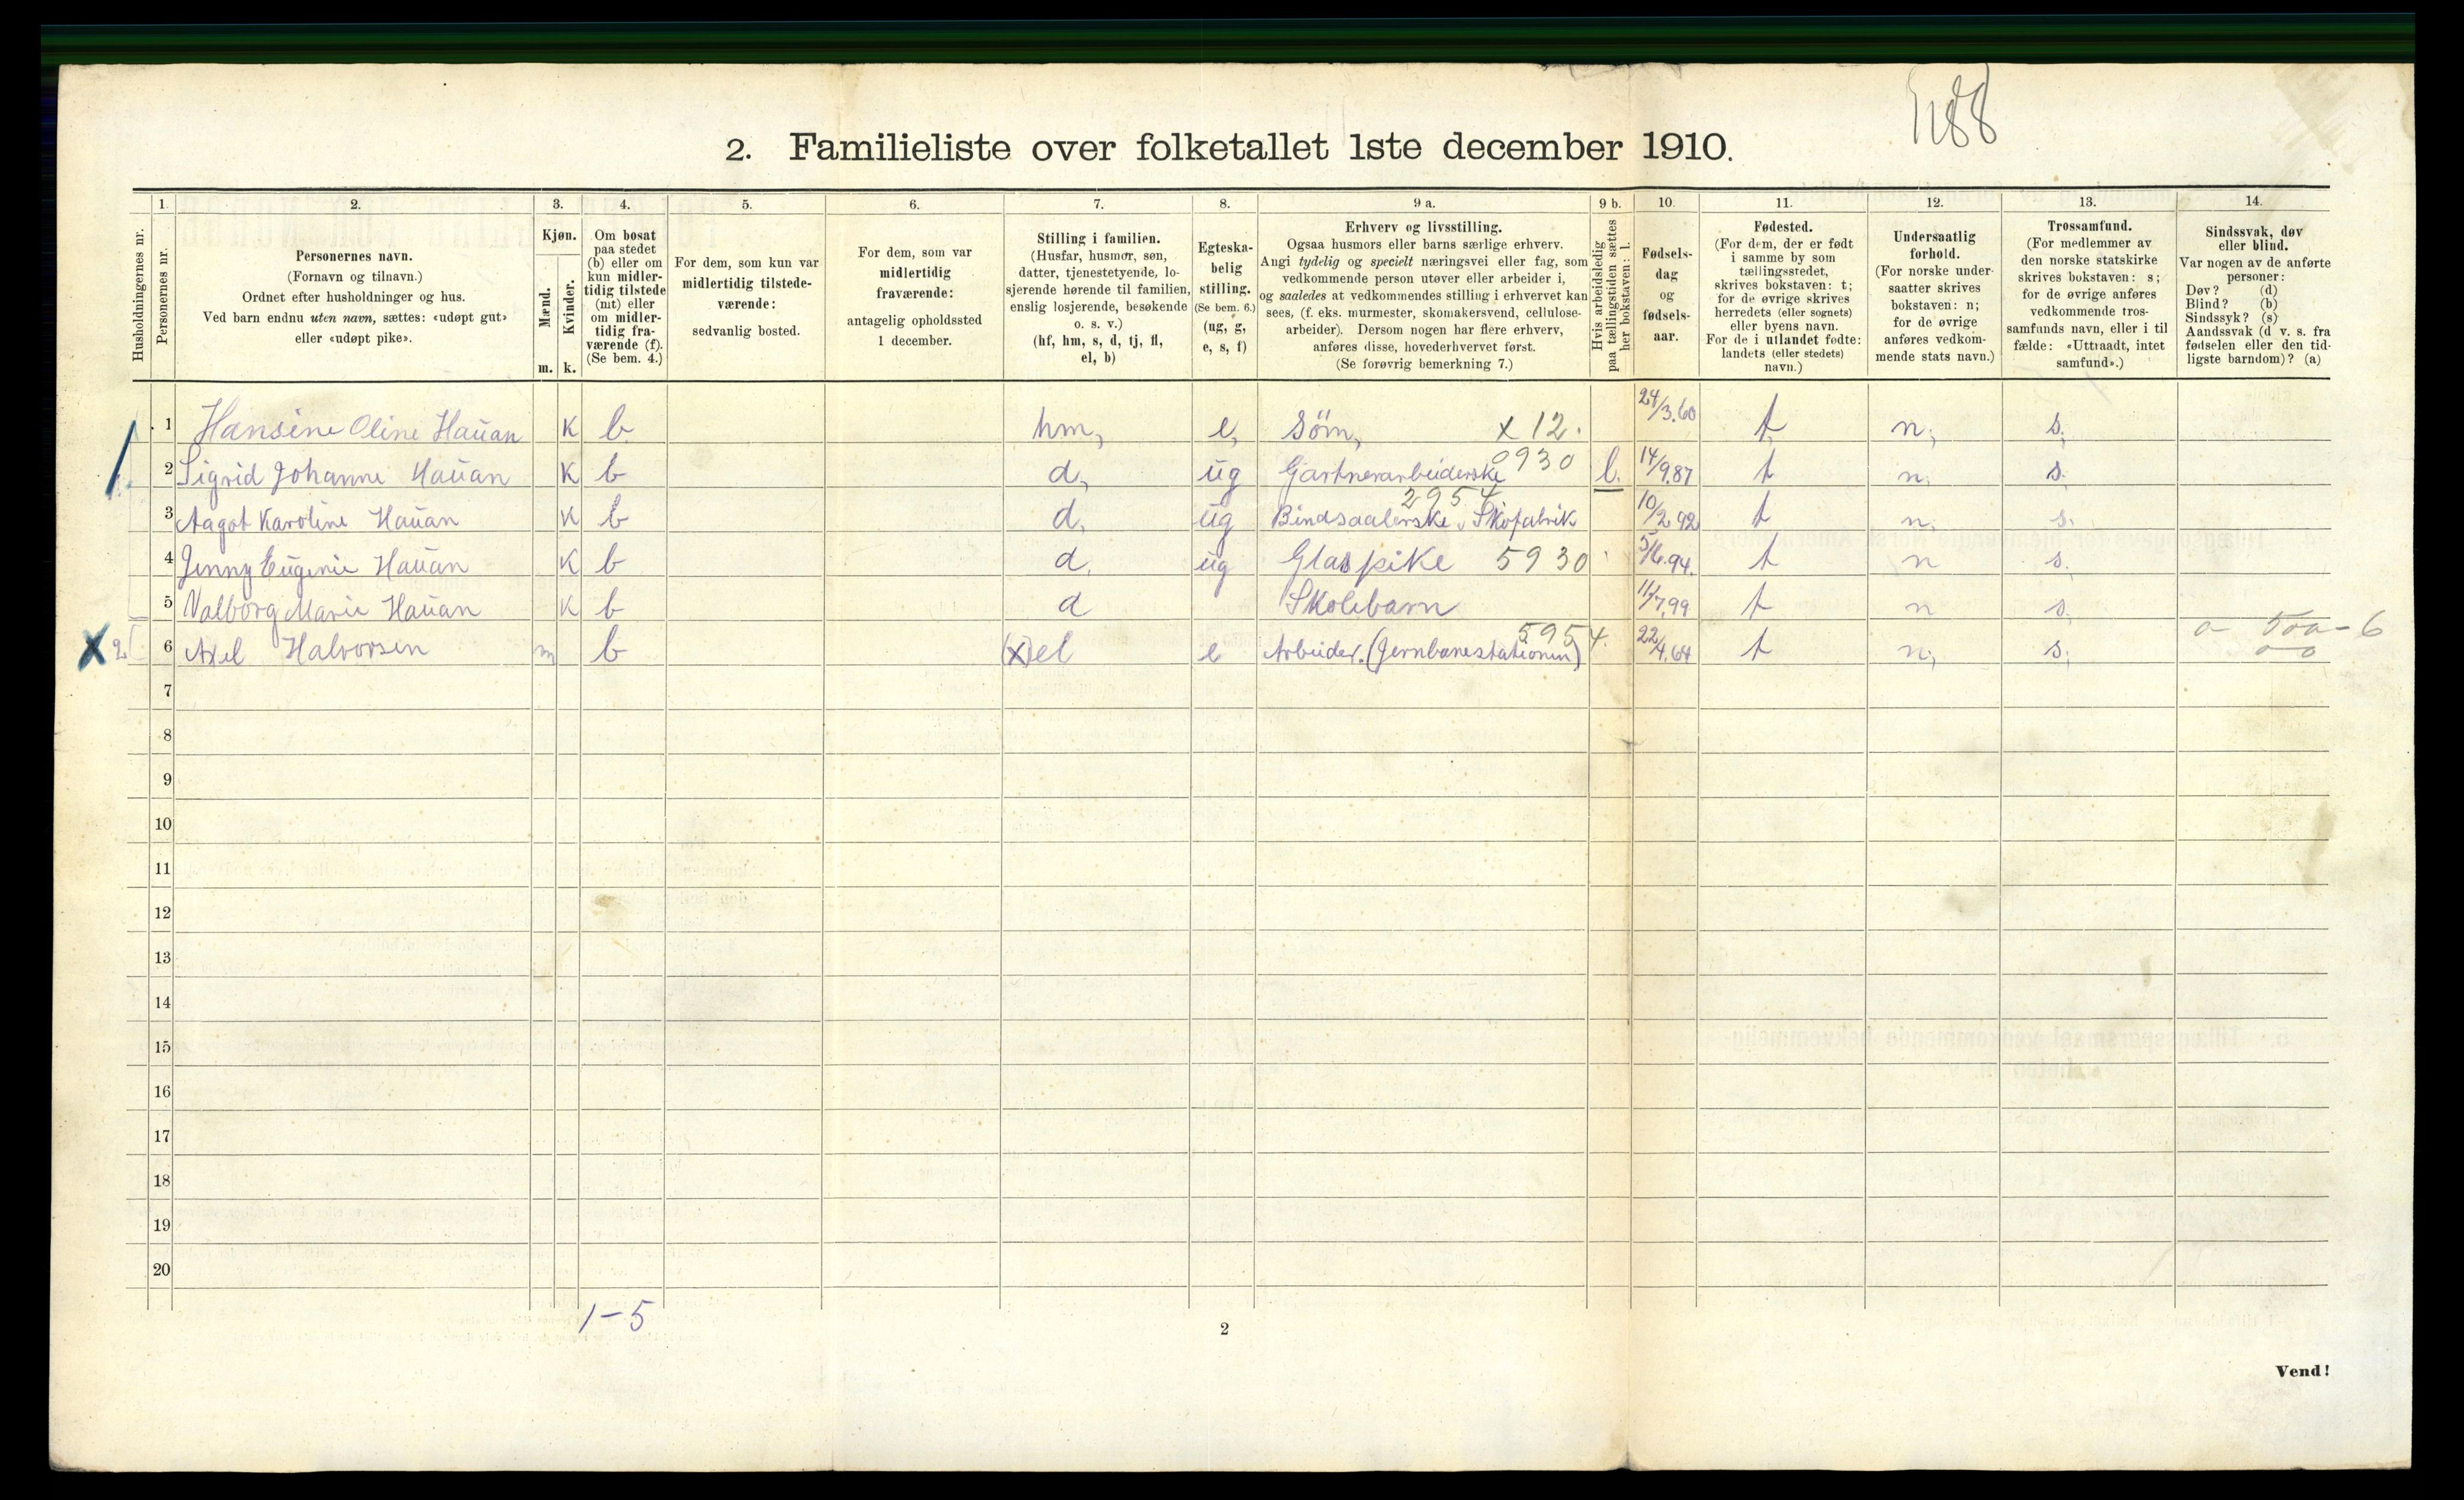 1188
2. Familieliste over folketallet 1ste december 1910.
Husholdningernes nr.
1.
Personernes nr.
2.
Personernes navn.
(Fornavn og tilnavn.)
Ordnet efter husholdninger og hus.
Ved barn endnu uten navn, sættes: «udøpt gut»
eller «udøpt pike».
3.
Kjøn.
Mænd.
Kvinder.
m. k.
4.
Om bosat
paa stedet
(b) eller om
kun midler-
tidig tilstede
(mt) eller
om midler-
tidig fra-
værende (f).
(Se bem. 4.)
5.
For dem, som kun var
midlertidig tilstede-
værende:
sedvanlig bosted.
6.
For dem, som var
midlertidig
fraværende:
antagelig opholdssted
1 december.
7.
Stilling i familien.
(Husfar, husmor, søn,
datter, tjenestetyende, lo-
sjerende hørende til familien,
enslig losjerende, besøkende
o. s. v.)
(hf, hm, s, d, tj, fl,
el, b)
8.
Egteska-
belig
stilling.
(Se bem. 6.)
(ug, g,
e, s, f)
9 a.
Erhverv og livsstilling.
Ogsaa husmors eller barns særlige erhverv.
Angi tydelig og specielt næringsvei eller fag, som
vedkommende person utøver eller arbeider i,
og saaledes at vedkommendes stilling i erhvervet kan
sees, (f. eks. murmester, skomakersvend, cellulose-
arbeider). Dersom nogen har flere erhverv,
anføres disse, hovederhvervet først.
(Se forøvrig bemerkning 7.)
9 b.
Hvis arbeidsledig
paa tællingstiden sættes
her bokstaven: l.
10.
Fødsels-
dag
og
fødsels-
aar.
11.
Fødested.
(For dem, der er født
i samme by som
tællingsstedet,
skrives bokstaven: t;
for de øvrige skrives
herredets (eller sognets)
eller byens navn.
For de i utlandet fødte:
landets (eller stedets)
navn.)
12.
Undersaatlig
forhold.
(For norske under-
saatter skrives
bokstaven: n;
for de øvrige
anføres vedkom-
mende stats navn.)
13.
Trossamfund.
(For medlemmer av
den norske statskirke
skrives bokstaven: s;
for de øvrige anføres
vedkommende tros-
samfunds navn, eller i til
fælde: «Uttraadt, intet
samfund».)
14.
Sindssvak, døv
eller blind.
Var nogen av de anførte
personer:
Døv? (d)
Blind? (b)
Sindssyk? (s)
Aandssvak (d v. s. fra
fødselen eller den tid-
ligste barndom)? (a)
1 1 Hansine Oline Hauan K b hm, e, Söm, x 12. 24/3.60 t n; s.
2 Sigrid Johanne Hauan K b d, ug Gartnerarbeiderske 0930 l. 14/9.87 t n. s.
3 Aagot Karoline Hauan K b d, ug Bindsaalerske v. Skofabrik 2954 10/2 92 t n. s.
4 Jenny Eugenie Hauan K b d, ug Glaspike 5930 5/6.94. t n s.
5 Valborg Marie Hauan K b d Skolebarn 11/7.99 t n s.
X 2 6 Axel Halvorsen m b (x) el e Arbeider. (Jernbanestationen) 5954. 22/4.64 t n; s;
7
8
9
10
11
12
13
14
15
16
17
18
19
20
1-5
2
Vend!